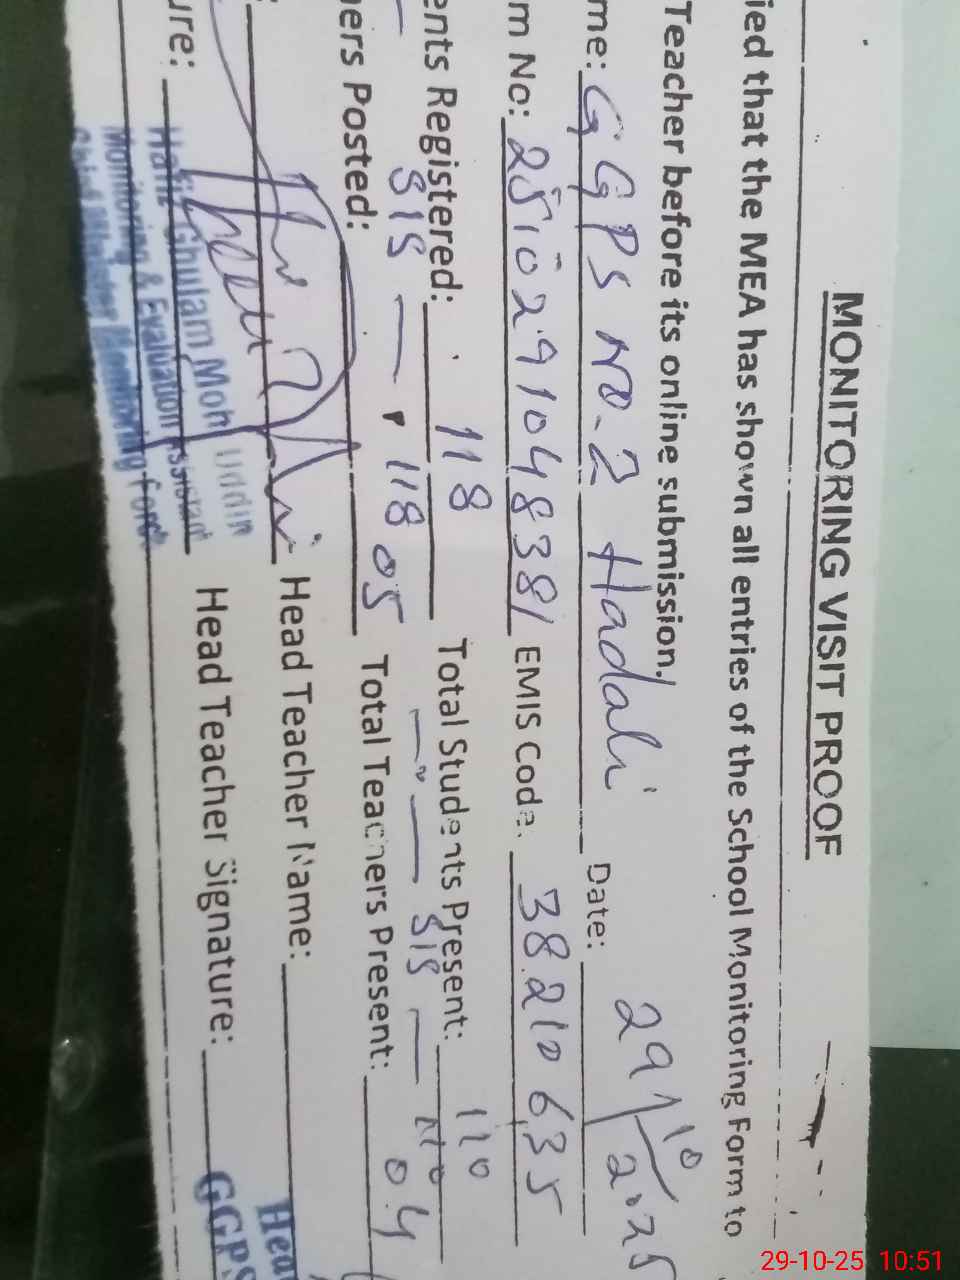 MONITORING VISIT PROOF
ied that the MEA has shown all entries of the School Monitoring Form to
Teacher before its online submission.
me: GGPS NO. 2 Hadali Date: 29/10/2025
m No: 251029104838 1 EMIS Code. 38210635
ents Registered: 118 Total Students Present: 110
SIS — 118 — " — SIS — 110
ers Posted: 05 Total Teachers Present: 04
Head Teacher Name:
ure: Head Teacher Signature:
Hafiz Ghulam Moh Uddin
Monitoring & Evaluation Assistant
Chief Minister Monitoring Force
Hea
GGPS
29-10-25 10:51